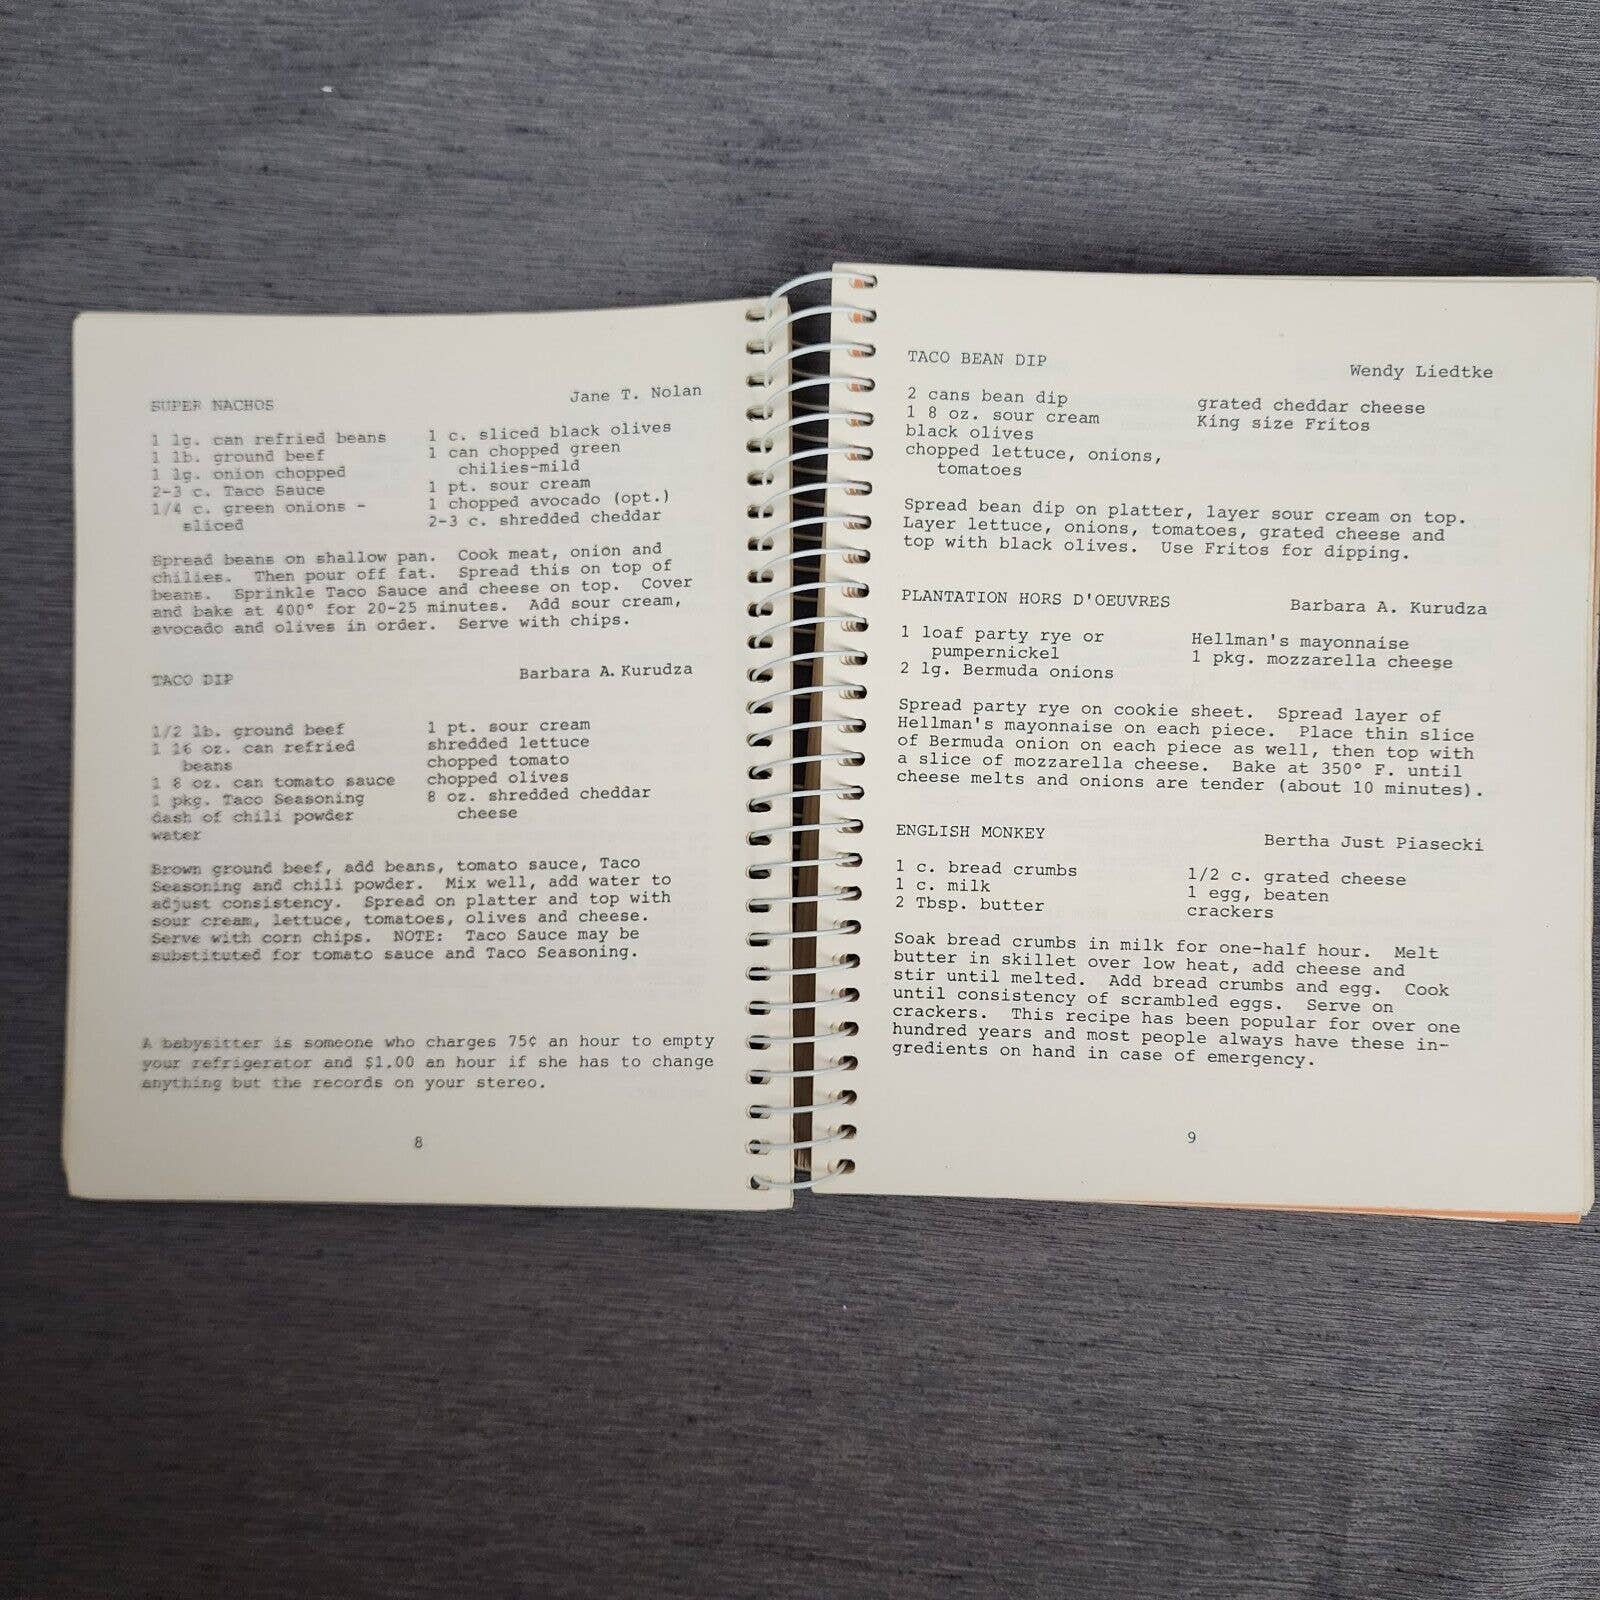 SUPER NACHOS Jane T. Nolan
1 lg. can refried beans 1 c. sliced black olives
1 lb. ground beef 1 can chopped green
1 lg. onion chopped chilies-mild
2-3 c. Taco Sauce 1 pt. sour cream
1/4 c. green onions - 1 chopped avocado (opt.)
sliced 2-3 c. shredded cheddar
Spread beans on shallow pan. Cook meat, onion and
chilies. Then pour off fat. Spread this on top of
beans. Sprinkle Taco Sauce and cheese on top. Cover
and bake at 400° for 20-25 minutes. Add sour cream,
avocado and olives in order. Serve with chips.
TACO DIP Barbara A. Kurudza
1/2 lb. ground beef 1 pt. sour cream
1 16 oz. can refried shredded lettuce
beans chopped tomato
1 8 oz. can tomato sauce chopped olives
1 pkg. Taco Seasoning 8 oz. shredded cheddar
dash of chili powder cheese
water
Brown ground beef, add beans, tomato sauce, Taco
Seasoning and chili powder. Mix well, add water to
adjust consistency. Spread on platter and top with
sour cream, lettuce, tomatoes, olives and cheese.
Serve with corn chips. NOTE: Taco Sauce may be
substituted for tomato sauce and Taco Seasoning.
A babysitter is someone who charges 75¢ an hour to empty
your refrigerator and $1.00 an hour if she has to change
anything but the records on your stereo.
8
TACO BEAN DIP Wendy Liedtke
2 cans bean dip grated cheddar cheese
1 8 oz. sour cream King size Fritos
black olives
chopped lettuce, onions,
tomatoes
Spread bean dip on platter, layer sour cream on top.
Layer lettuce, onions, tomatoes, grated cheese and
top with black olives. Use Fritos for dipping.
PLANTATION HORS D'OEUVRES Barbara A. Kurudza
1 loaf party rye or Hellman's mayonnaise
pumpernickel 1 pkg. mozzarella cheese
2 lg. Bermuda onions
Spread party rye on cookie sheet. Spread layer of
Hellman's mayonnaise on each piece. Place thin slice
of Bermuda onion on each piece as well, then top with
a slice of mozzarella cheese. Bake at 350° F. until
cheese melts and onions are tender (about 10 minutes).
ENGLISH MONKEY Bertha Just Piasecki
1 c. bread crumbs 1/2 c. grated cheese
1 c. milk 1 egg, beaten
2 Tbsp. butter crackers
Soak bread crumbs in milk for one-half hour. Melt
butter in skillet over low heat, add cheese and
stir until melted. Add bread crumbs and egg. Cook
until consistency of scrambled eggs. Serve on
crackers. This recipe has been popular for over one
hundred years and most people always have these in-
gredients on hand in case of emergency.
9